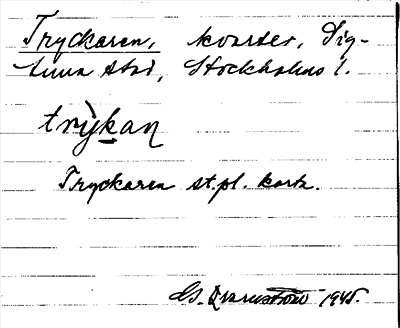 Tryckaren, kvarter, Sig-
tuna stad, Stockholms l.
trỳkan
Tryckaren st.pl. karta.
1945.